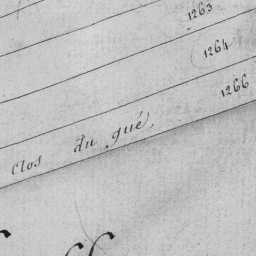 1263
1264
1266
clos du gué